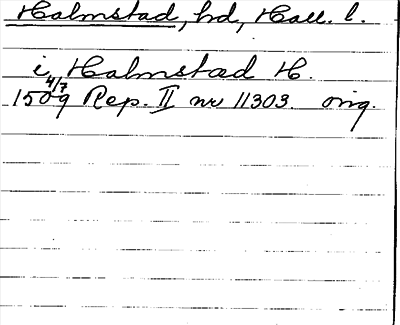 Halmstad, hd, Hall. l.
i Halmstad H.
4/7
1509 Rep. II nr 11303. orig.